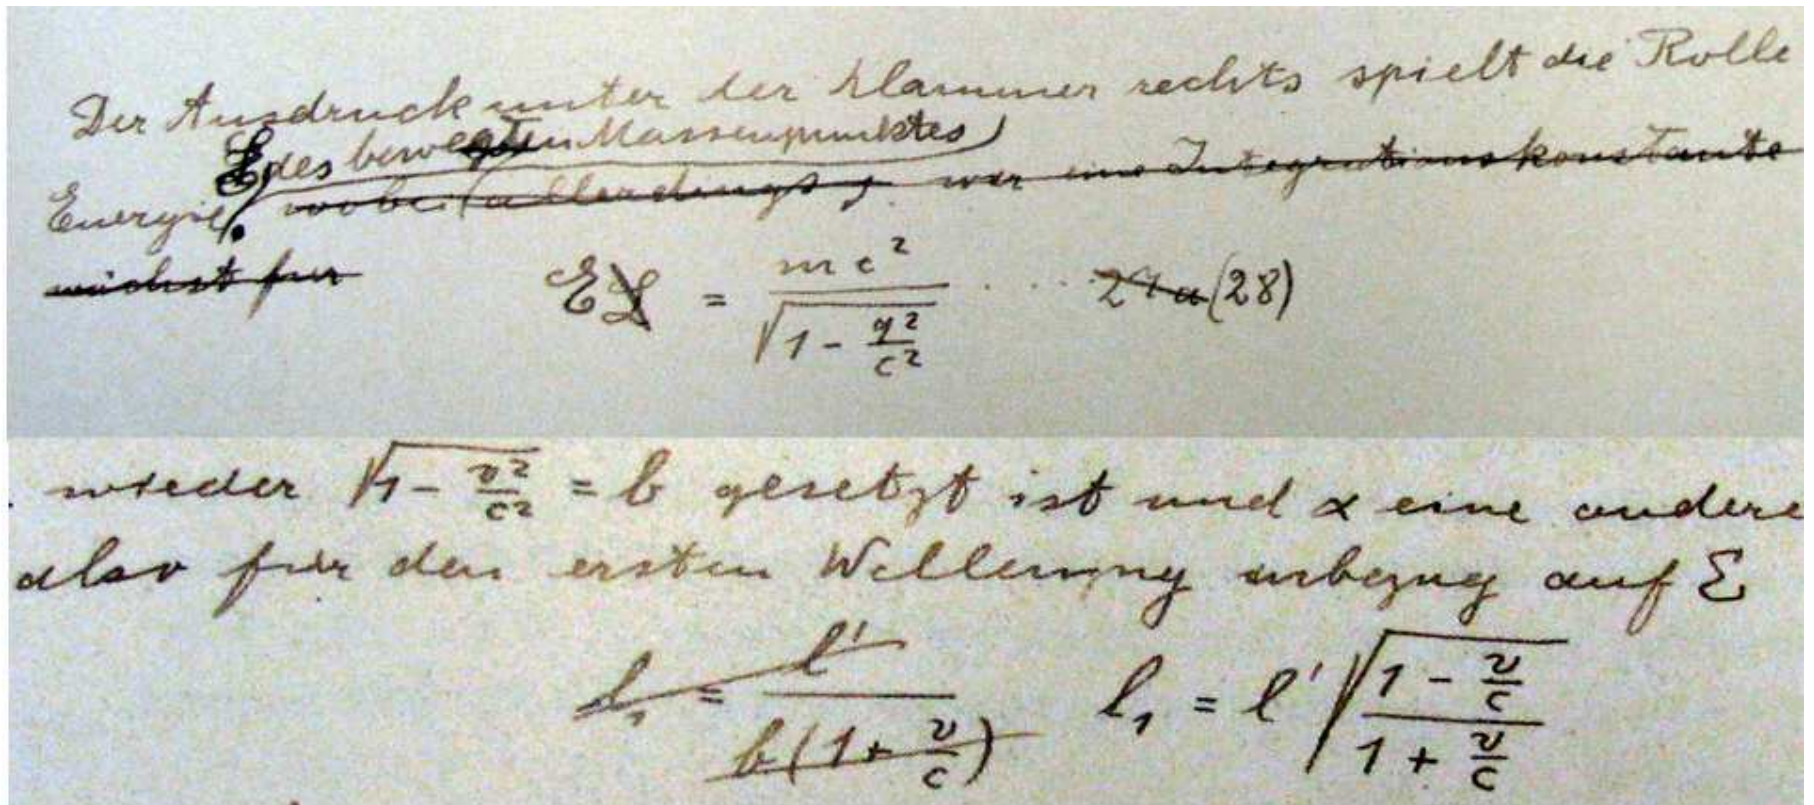 Der Ausdruck unter der Klammer rechts spielt die Rolle
E des bewegten Massenpunktes
Energie. wobei (allerdings zwar eine Integrationskonstante
E L = mc² / √(1 - q²/c²) . . . . 27a (28)
wieder √(1 - v²/c²) = b gesetzt ist und α eine andere
also für den ersten Wellenzug inbezug auf Σ
l₁ = l' / b(1 + v/c) l₁ = l' √((1 - v/c) / (1 + v/c))